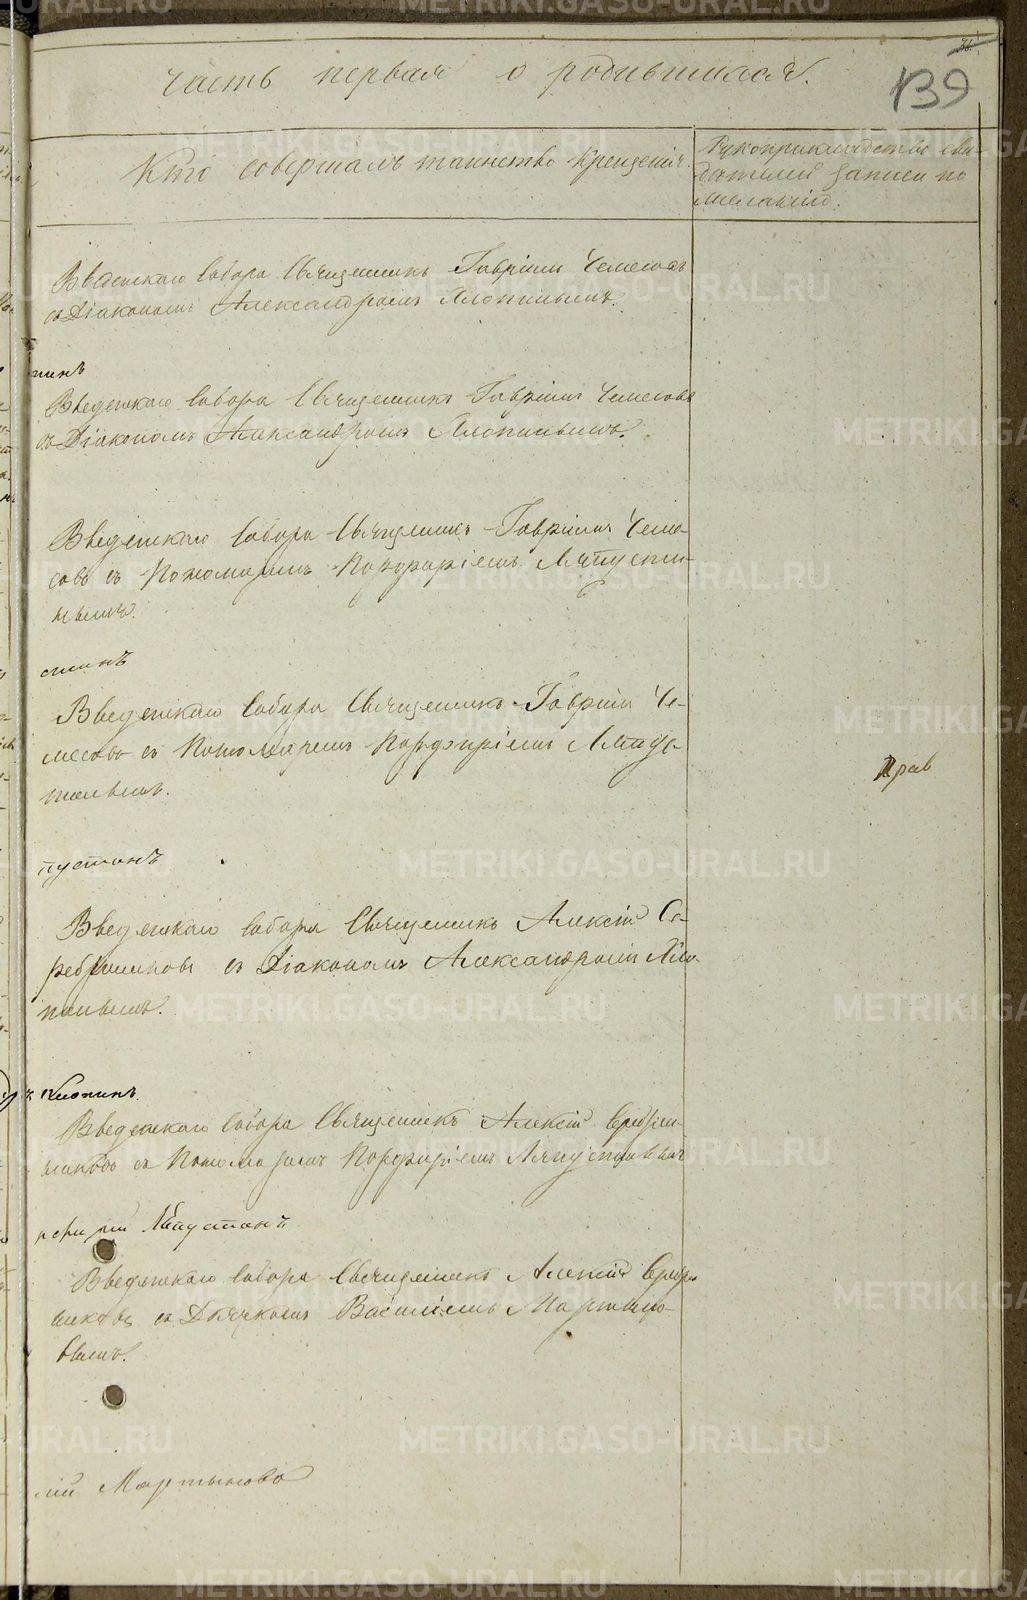 36.
139
Часть первая о родившихся.
Кто совершалъ таинство крещенія.
Рукоприкладство сви-
дѣтелей записи по
желанію.
Введенскаго Собора Священникъ Гавріилъ Чемесовъ
съ Діакономъ Александромъ Хлопинымъ.
пинъ
Введенскаго Собора Священникъ Гавріилъ Чемесовъ
съ Діакономъ Александромъ Хлопинымъ.
Введенскаго Собора Священникъ Гавріилъ Чеме-
совъ съ Пономаремъ Порфиріемъ Ляпусти-
нымъ.
стинъ
Введенскаго Собора Священникъ Гавріилъ Че-
месовъ съ Пономаремъ Порфиріемъ
Прав
пустинъ
Введенскаго Собора Священникъ Алексій Се-
ребрениковъ съ Діакономъ Александромъ Хло-
пинымъ.
Хлопинъ.
Введенскаго Собора Священникъ Алексій Сребре-
никовъ съ Пономаремъ Порфиріемъ Ляпустинымъ
рфирій Ляпустинъ
Введенскаго Собора Священникъ Алексій Сребре
никовъ съ Дьячкомъ Василіемъ Мартыно-
вымъ.
лій Мартыновъ
METRIKI.GASO-URAL.RU